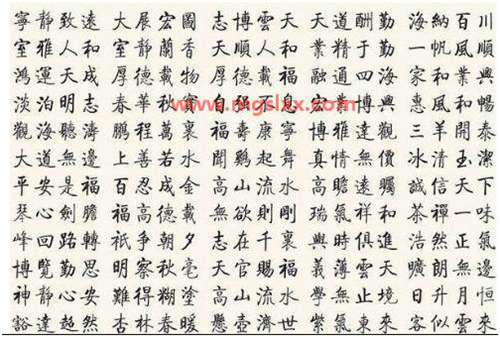 寧靜致遠 大展宏圖 志博雲天 天道酬勤 海納百川
室雅人和 室靜蘭香 天順人和 業精于勤 一帆風順
鴻運天成 厚德載物 厚德載福 融通四海 家和業興
淡泊明志 春華秋實 自強不息 博興 惠風和暢
www.mgslxx.com
觀海聽濤 鵬程萬裏 福壽康寧 博雅達觀 三羊開泰
大道無邊 上善若水 聞鷄起舞 真情無價 冰清玉潔
平安是福 百忍成金 高山流水 高瞻遠矚 誠信天下
琴心劍膽 福高德載 無欲則剛 瑞氣祥和 茶禪一味
峰回路轉 祇爭朝夕 志在千裏 與時俱進 浩然正氣
博覽勤思 明察秋毫 天官賜福 義薄雲天 曠朗無邊
神靜心安 難得糊塗 高山福水 學無止境 日升月恒
豁達超然 杏林春暖 懸壺濟世 紫氣東來 客似雲來